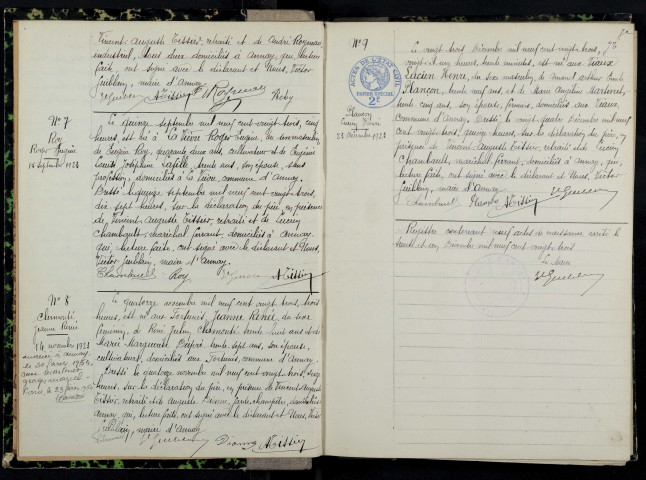 Vincent Auguste Tissier, retraité et de André Raymond
industriel, tous deux domiciliés à Annay, qui, lecture
faite, ont signé avec le déclarant et Nous, Victor
Guiblain, maire d'Annay.
Roby
N° 7
Roy
Roger Eugène
15 septembre 1923
Le quinze septembre mil neuf cent vingt-trois, cinq
heures est né à La Vèvre Roger Eugène, du sexe masculin
de Eugène Roy, quarante deux ans, cultivateur et de Eugénie
Louise Joséphine, trente ans, son épouse, sans
profession, domiciliés à La Vèvre, commune d'Annay.
Dressé le quinze septembre mil neuf cent vingt-trois,
dix sept heures, sur la déclaration du père, en présence
de Vincent Auguste Tissier, retraité et de Lucien
Chambault, maréchal ferrant, domiciliés à Annay
qui, lecture faite, ont signé avec le déclarant et Nous,
Victor Guiblain, maire d'Annay.
Chambault Roy Tissier
N° 8
Jeanne Renée
14 novembre 1923
Le quatorze novembre mil neuf cent vingt trois, trois
heures, est née aux Fortunis, Jeanne Renée, du sexe
féminin, de René Jules, trente huit ans et de
Marie Marguerite Dupré, trente sept ans, son épouse,
cultivateurs, domiciliés aux Fortunis, commune d'Annay.
Dressé le quatorze novembre mil neuf cent vingt-trois,
heures, sur la déclaration du père, en présence de Vincent Auguste
Tissier, retraité et de Auguste, garde-champêtre, domiciliés à
Annay qui, lecture faite, ont signé avec le déclarant et Nous, Victor
Guiblain, maire d'Annay.
Tissier
N° 9
ACTES DE L'ÉTAT CIVIL
PAPIER SPÉCIAL
2F
Plançon
Lucien Henri
23 décembre 1923
Le vingt trois Décembre mil neuf cent vingt-trois,
vingt et une heures, trente minutes, est né aux Viaux
Lucien Henri, du sexe masculin, de Arthur Émile
Plançon, trente neuf ans, et de Marie Angeline Martinet,
trente cinq ans, son épouse, fermiers, domiciliés aux Viaux,
commune d'Annay. Dressé le vingt quatre Décembre mil neuf
cent vingt-trois, quinze heures, sur la déclaration du père, en
présence de Vincent Auguste Tissier, retraité et de Lucien
Chambault, maréchal ferrant, domiciliés à Annay, qui,
lecture faite, ont signé avec le déclarant et Nous, Victor
Guiblain, maire d'Annay.
Chambault Plançon Tissier
Registre contenant neuf actes de naissance arrêté le
trente et un Décembre mil neuf cent vingt trois
Le Maire